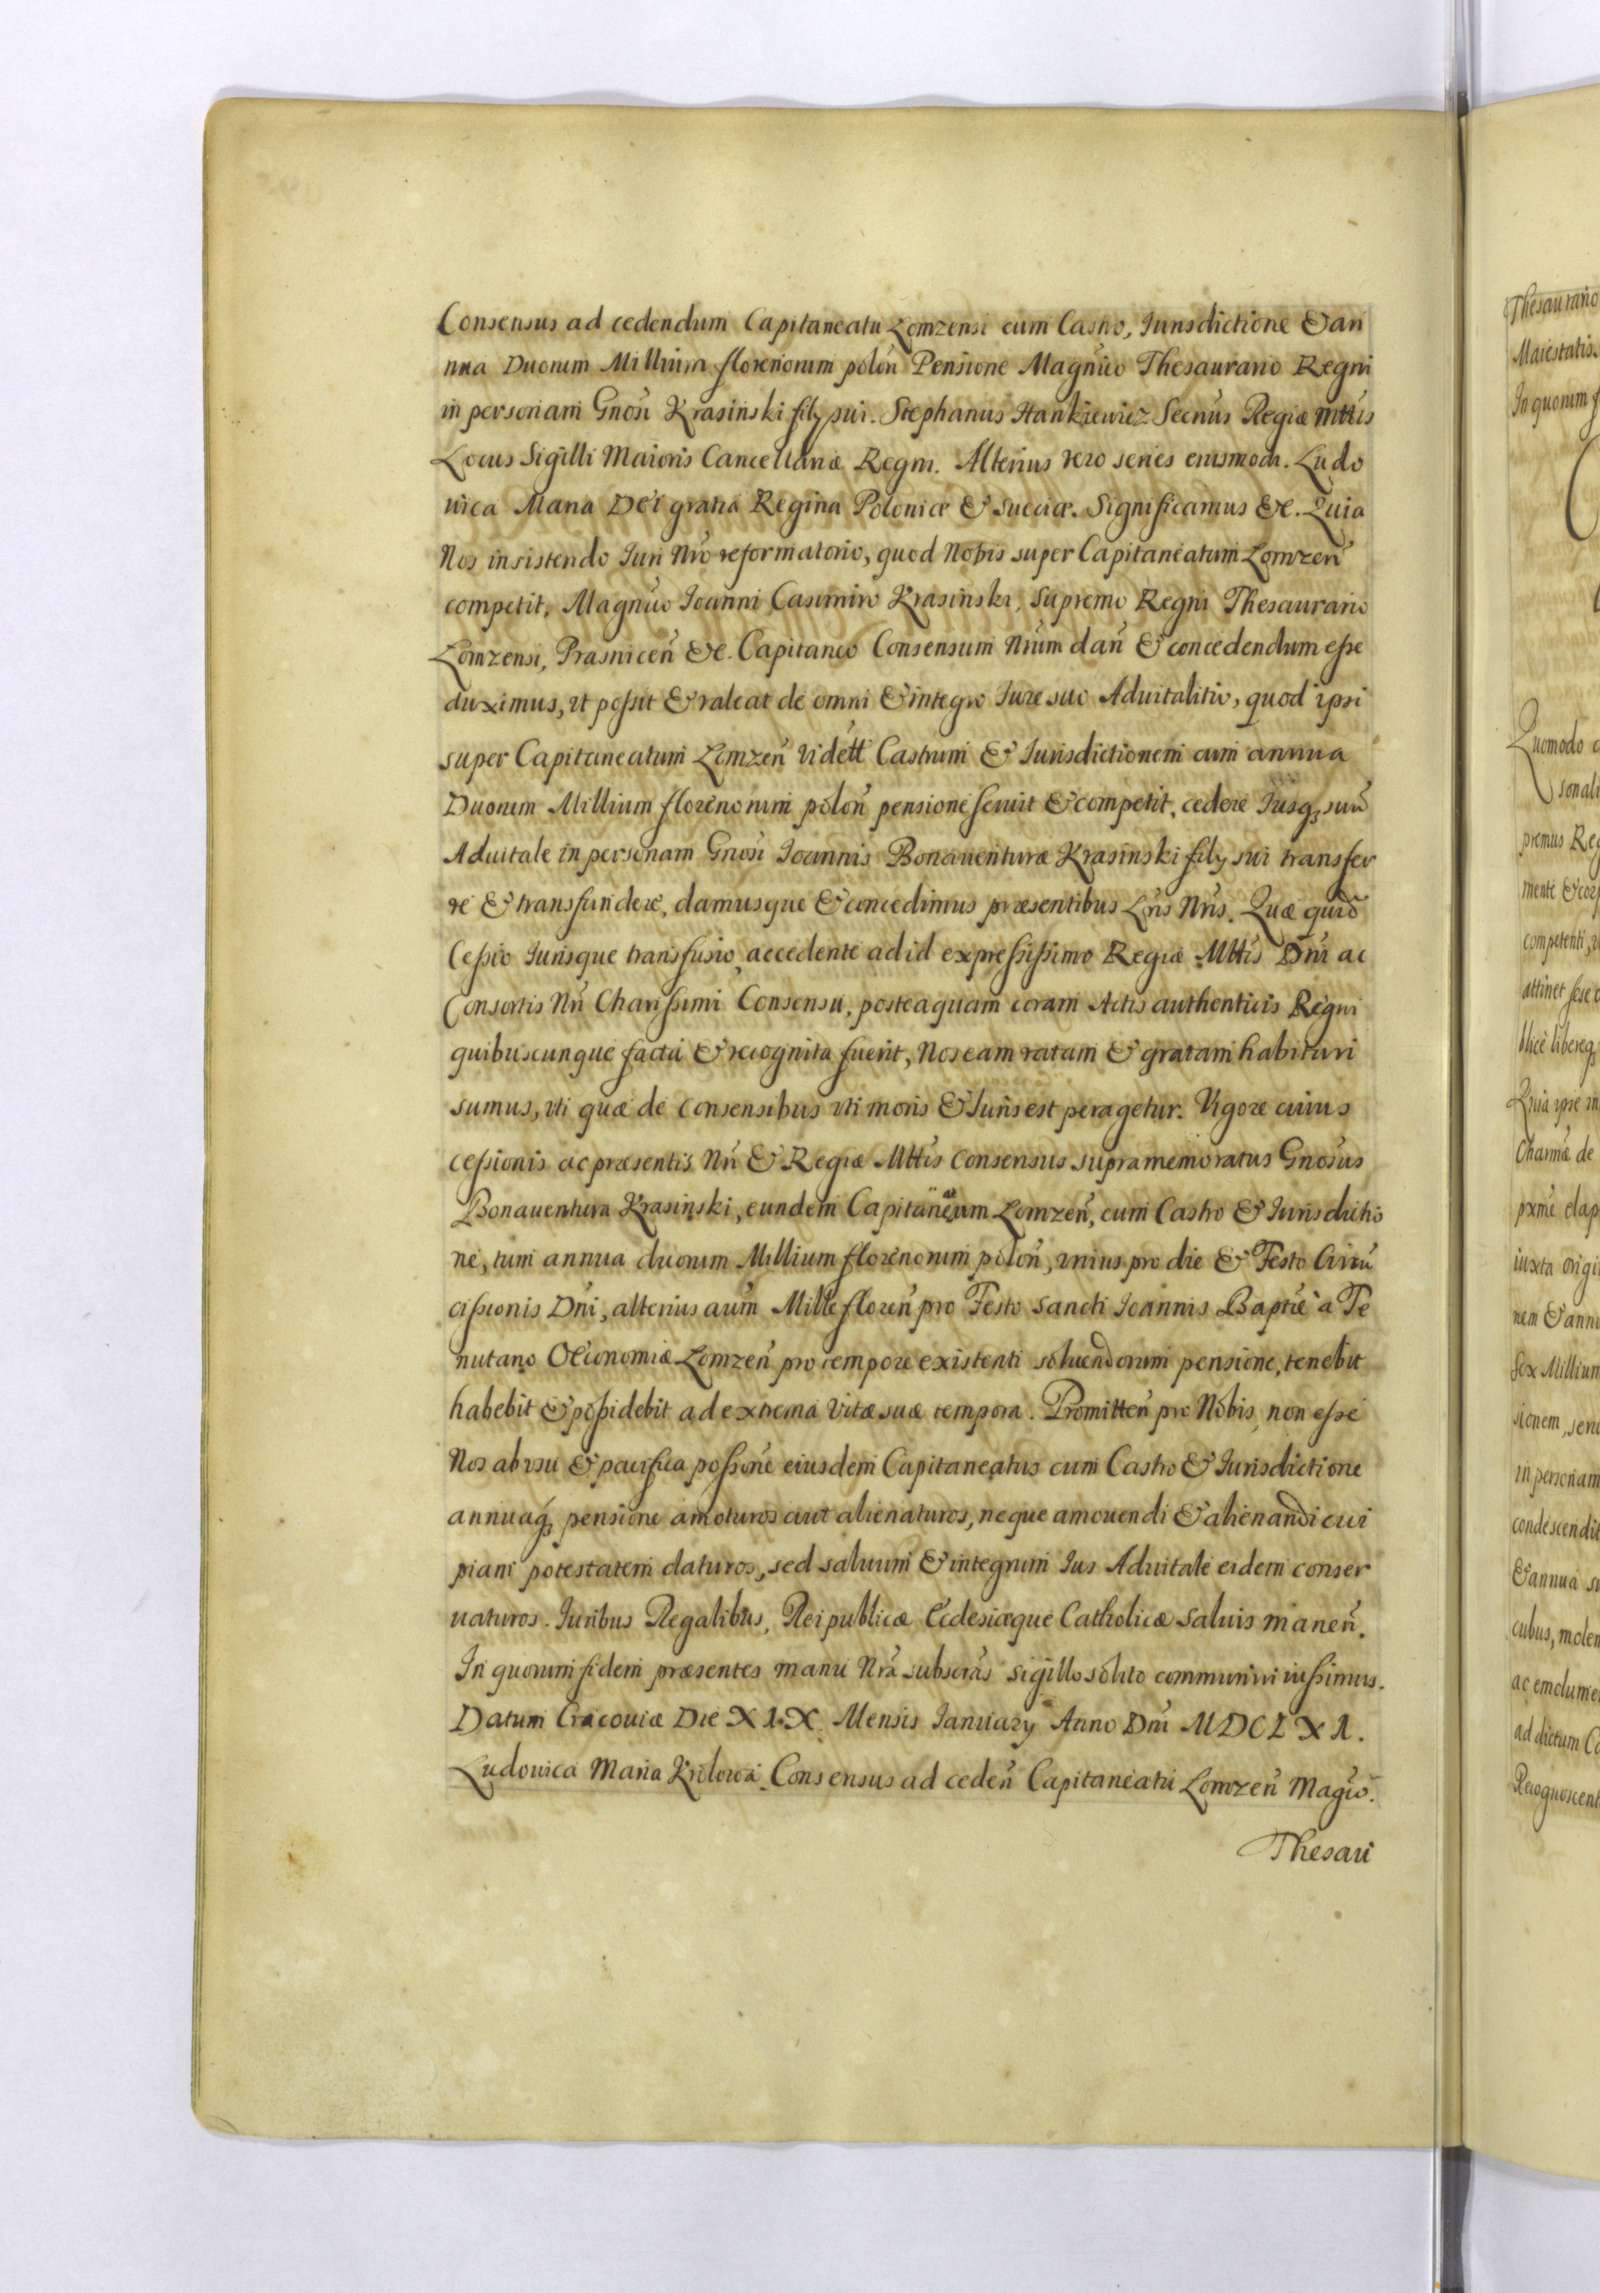 Consensus ad cedendum Capitaneatu Lomzensi cum Castro, Jurisdictione & an
nua Duorum Millium florenorum polon̄ Pensione Magn̄co Thesaurario Regni
in personam Gnosi Krasinski filij sui. Stephanus Hankiewicz Secr̄us Regiæ Mttis
Locus Sigilli Maioris Cancellariæ Regni. Alterius vero series eiusmodi. Ludo
uica Maria Dei gratia Regina Poloniæ & Sueciæ. Significamus &c. Quia
Nos insistendo Juri Nrō reformatorio, quod Nobis super Capitaneatum Lomzen̄
competit, Magn̄co Joanni Casimiro Krasinski, Supremo Regni Thesaurario
Lomzensi, Prasnicen̄ &c. Capitaneo Consensum Nrūm dan̄ & concedendum esse
duximus, vt possit & valeat de omni & integro Iure suo Aduitalitio, quod ipsi
super Capitaneatum Lomzen̄ vidett Castrum & Jurisdictionem cum annua
Duorum Millium florenorum polon̄ pensione seruit & competit, cedere Jusq₃ suū
Aduitale in personam Gnosi Joannis Bonauenturæ Krasinski filij sui transfer
re & transfundere, damusque & concedimus præsentibus Lrīs Nrīs. Quæ quid̄
Cessio Jurisque transfusio, accedente ad id expressissimo Regiæ Mttis Dnī ac
Consortis Nrī Charissimi Consensu, posteaquam coram Actis authenticis Regni
quibuscunque facta & recognita fuerit, Nos eam ratam & gratam habituri
sumus, vti quæ de consensibus vti moris & Iuris est peragetur. Vigore cuius
cessionis ac præsentis Nrī & Regiæ Mttis consensus supramemoratus Gnosus
Bonauentura Krasinski, eundem Capitaneatum Lomzen̄, cum Castro & Jurisdictio
ne, tum annua duorum Millium florenorum polon̄, vnius pro die & Festo Circū
cissionis Dnī, alterius aūm Mille floren̄ pro Festo Sancti Joannis Baptæ à Te
nutario Oeconomiæ Lomzen̄ pro tempore existenti soluendorum pensione, tenebit
habebit & possidebit ad extrema vitæ suæ tempora. Promitten̄ pro Nobis, non esse
Nos ab vsu & pacifica possōne eiusdem Capitaneatus cum Castro & Jurisdictione
annuaq₃ pensione amoturos aut alienaturos, neque amouendi & alienandi cui
piam potestatem daturos, sed saluum & integrum Ius Aduitale eidem conser
uaturos. Juribus Regalibus, Reipublicæ Ecclesiæque Catholicæ saluis manen̄.
In quorum fidem præsentes manu Nrā subscrās sigillo solito communiri iussimus.
Datum Cracouiæ Die XIX. Mensis Ianuarij Anno Dnī MDCLXI.
Ludouica Maria Krolowa. Consensus ad ceden̄ Capitaneatu Lomzen̄ Magcō.
Thesau
Thesaurario
Maiestatis
In quorum f
Quomodo
sonali
premus Reg
mente & cor
competenti,
attinet sese
libereq₃
Quia ipse in
de
elap
iuxta origi
nem & annu
sex Millium
sionem, seru
in personam
condescendit
& annua su
cubus, molen
ac emolumen
ad dictum Ca
Recognoscent